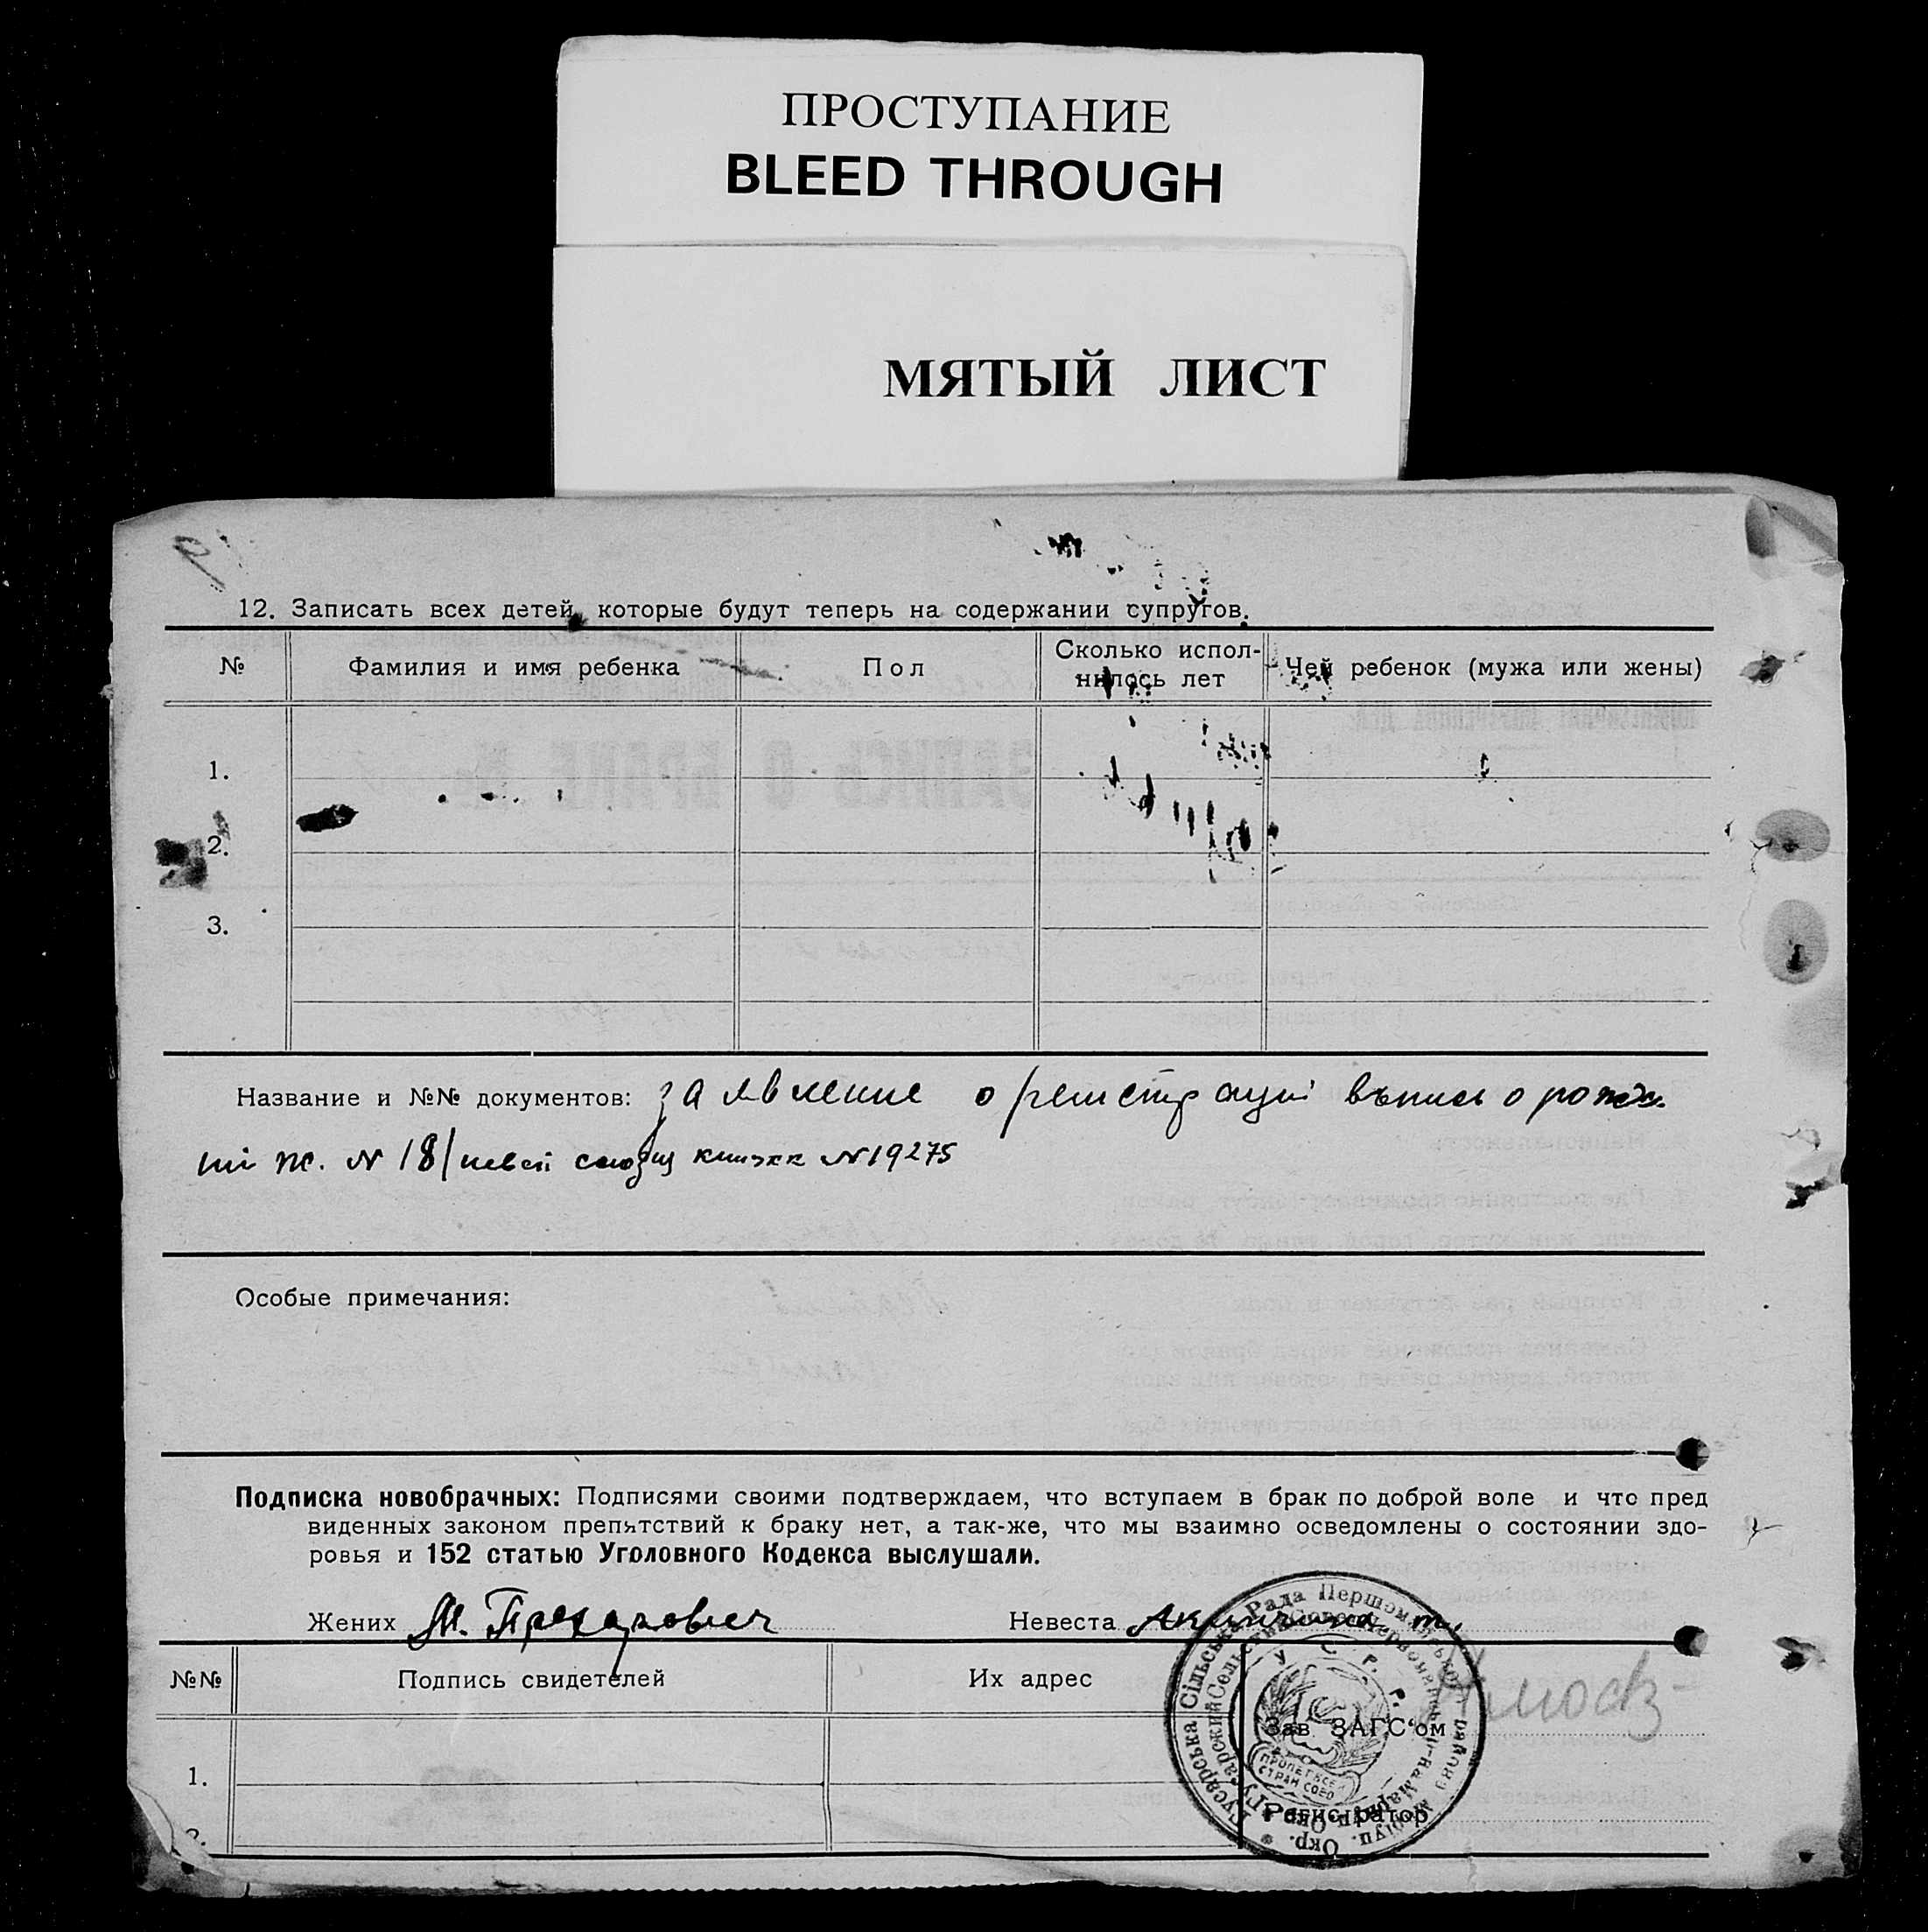 ПРОСТУПАНИЕ
BLEED THROUGH
МЯТЫЙ ЛИСТ
12. Записать всех детей, которые будут теперь на содержании супругов.
№ Фамилия и имя ребенка Пол Сколько испол-нилось лет Чей ребенок (мужа или жены)
1.
2.
3.
Название и №№ документов: заявление о регистрации выпись о рожд.
ж. N 18 книжк N 19275
Особые примечания:
Подписка новобрачных: Подписями своими подтверждаем, что вступаем в брак по доброй воле и что пред
виденных законом препятствий к браку нет, а так-же, что мы взаимно осведомлены о состоянии здо-
ровья и 152 статью Уголовного Кодекса выслушали.
Жених М. Невеста т.
№№ Подпись свидетелей Их адрес
У. С. Р. Р.
Зав. ЗАГС'ом
ПРОЛЕТ ВСЕ
СТРАН СОЕД
1.
Регистратор
2.
Гусарська Сільська Рада Першомайського району Маріуп. Окр.